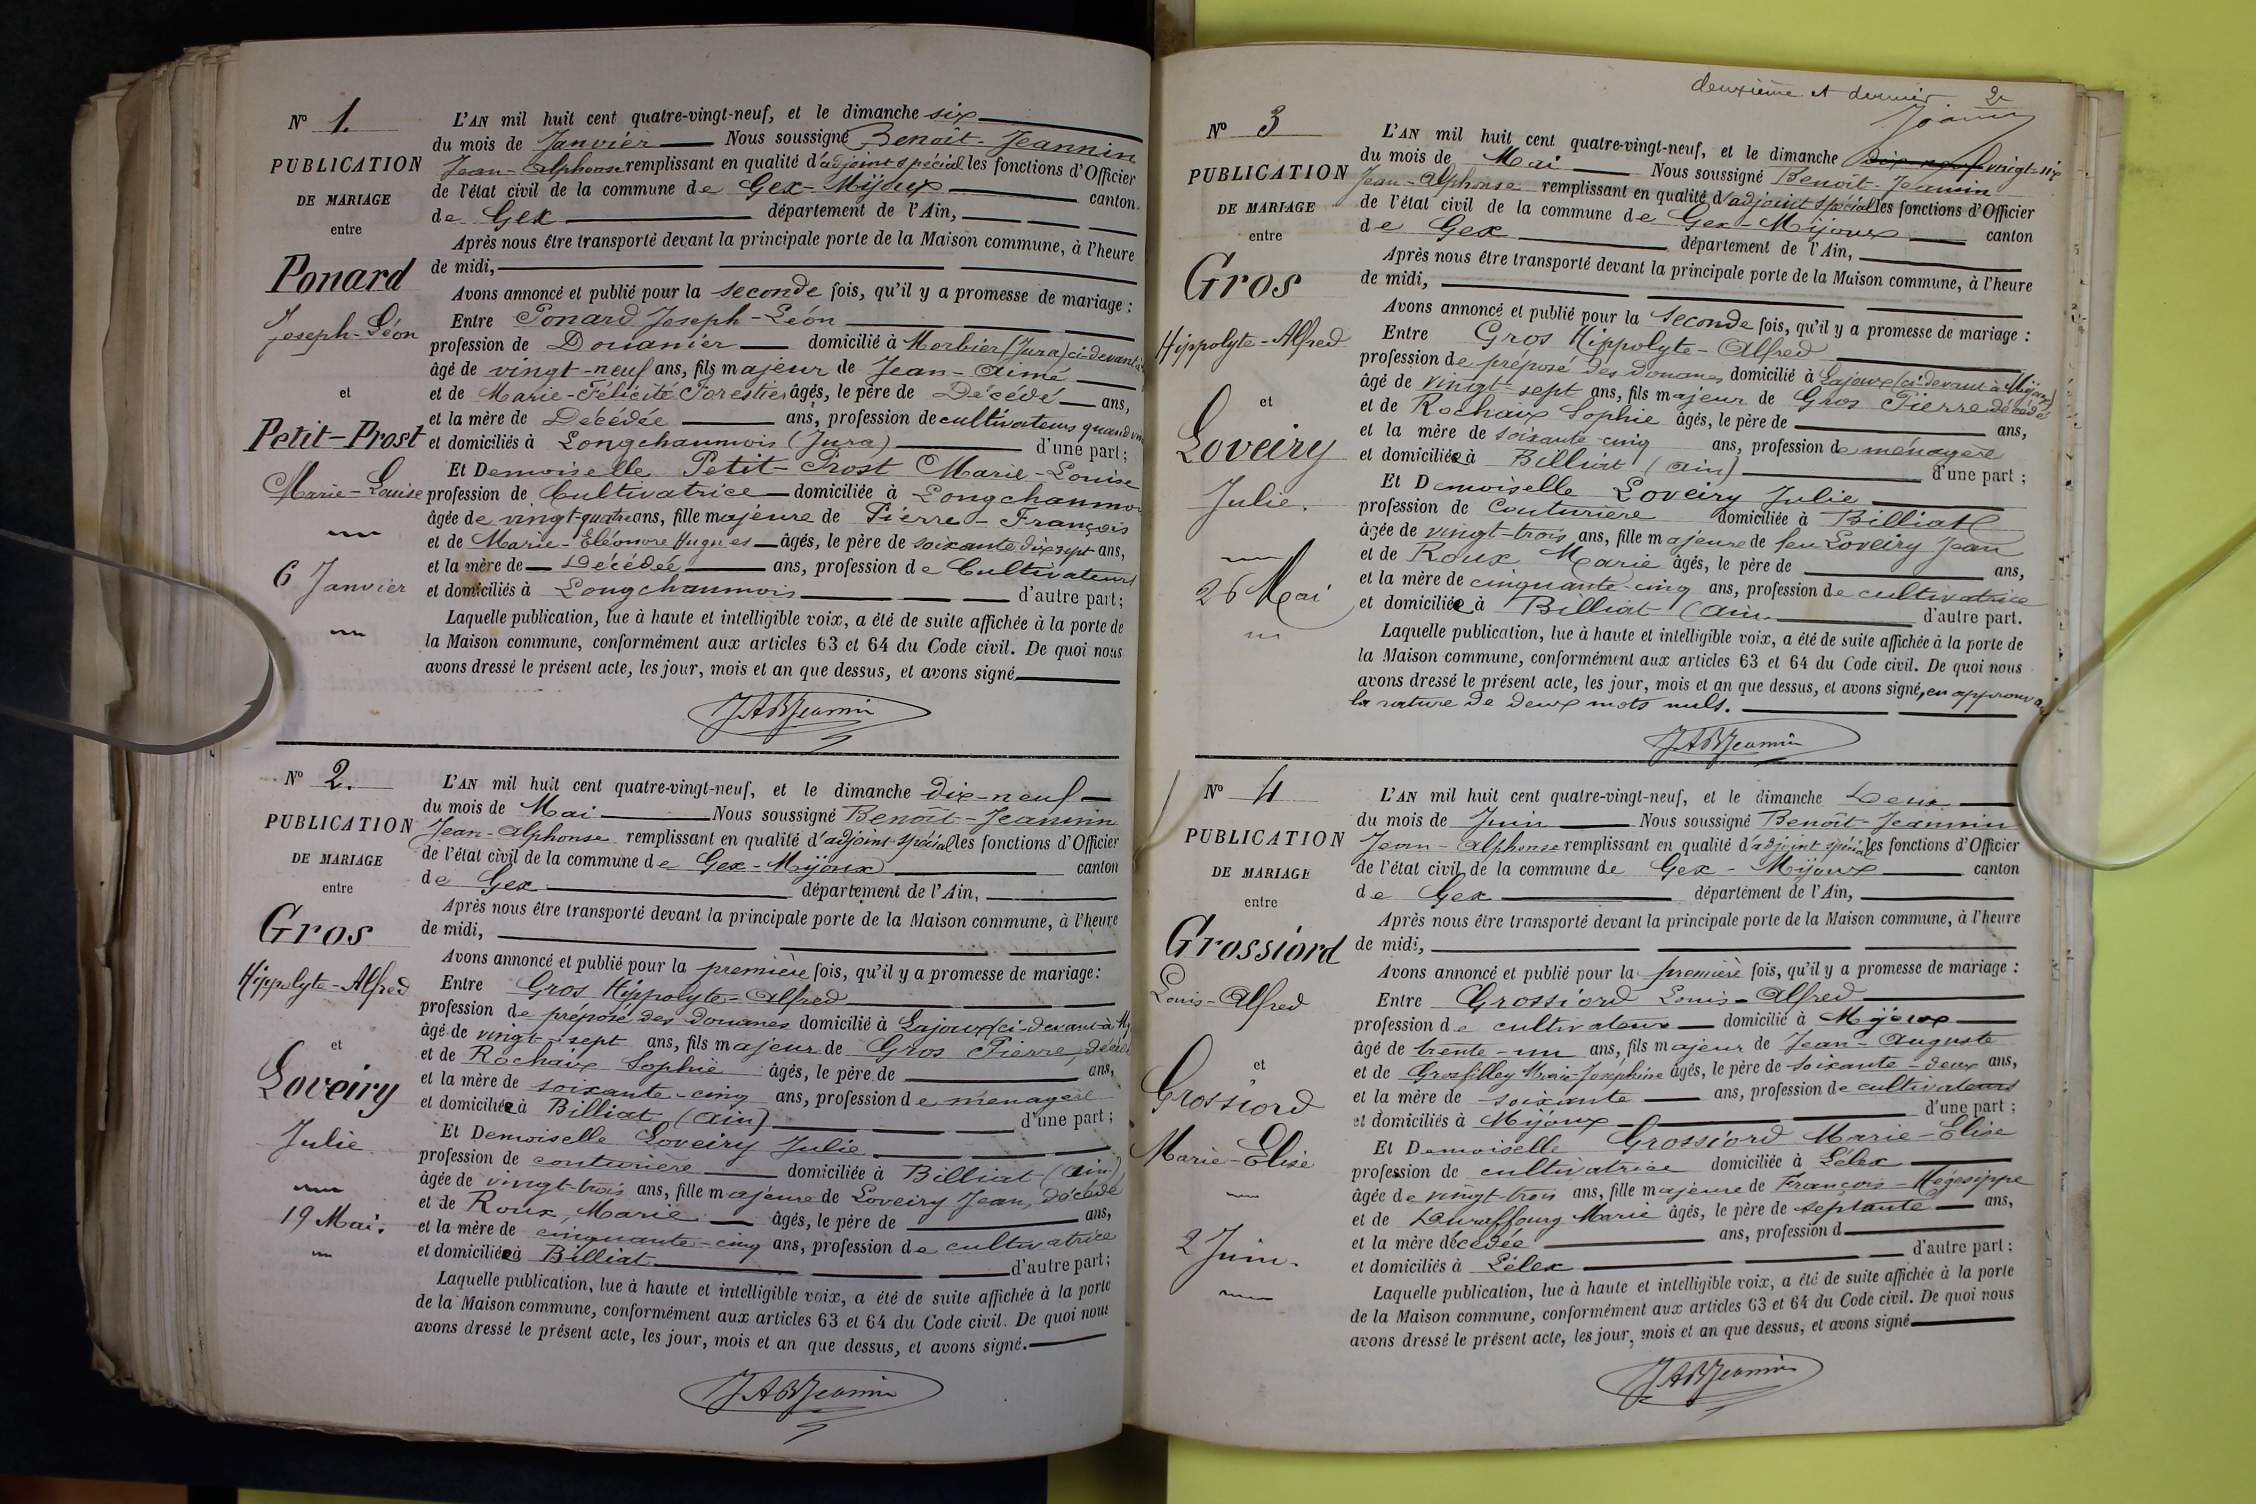 N° 1.
PUBLICATION
DE MARIAGE
entre
Ponard
Joseph-Léon
et
Petit-Prost
Marie-Louise
6 Janvier
L'AN mil huit cent quatre-vingt-neuf, et le dimanche six
du mois de Janvier Nous soussigné Benoît-Jeannin
Jean-Alphonse remplissant en qualité d'adjoint spécial les fonctions d'Officier
de l'état civil de la commune de Gex-Mijoux canton
de Gex département de l'Ain,
Après nous être transporté devant la principale porte de la Maison commune, à l'heure
de midi,
Avons annoncé et publié pour la seconde fois, qu'il y a promesse de mariage :
Entre Ponard Joseph-Léon
profession de Douanier domicilié à Morbier (Jura) ci-devant à
âgé de vingt-neuf ans, fils majeur de Jean-Aimé
et de Marie-Félicité Forestier âgés, le père de Décédé ans,
et la mère de Décédée ans, profession de cultivateurs quand
et domiciliés à Longchaumois (Jura) d'une part ;
Et Demoiselle Petit-Prost Marie-Louise
profession de Cultivatrice domiciliée à Longchaumo
âgée de vingt-quatre ans, fille majeure de Pierre-François
et de Marie-Eléonore Hugues âgés, le père de soixante dix sept ans,
et la mère de Décédée ans, profession de Cultivateurs
et domiciliés à Longchaumois d'autre part ;
Laquelle publication, lue à haute et intelligible voix, a été de suite affichée à la porte de
la Maison commune, conformément aux articles 63 et 64 du Code civil. De quoi nous
avons dressé le présent acte, les jour, mois et an que dessus, et avons signé
JABJeannin
N° 2.
PUBLICATION
DE MARIAGE
entre
Gros
Hippolyte-Alfred
et
Loveiry
Julie
19 Mai.
L'AN mil huit cent quatre-vingt-neuf, et le dimanche dix-neuf
du mois de Mai Nous soussigné Benoît-Jeannin
Jean-Alphonse remplissant en qualité d'adjoint spécial les fonctions d'Officier
de l'état civil de la commune de Gex-Mijoux canton
de Gex département de l'Ain,
Après nous être transporté devant la principale porte de la Maison commune, à l'heure
de midi,
Avons annoncé et publié pour la première fois, qu'il y a promesse de mariage :
Entre Gros Hippolyte-Alfred
profession de préposé des Douanes domicilié à Lajoux (ci-devant à
âgé de vingt-sept ans, fils majeur de Gros Pierre, décédé
et de Rochaix Sophie âgés, le père de ans,
et la mère de soixante-cinq ans, profession de ménagère
et domiciliée à Billiat (Ain) d'une part ;
Et Demoiselle Loveiry Julie
profession de couturière domiciliée à Billiat (Ain)
âgée de vingt-trois ans, fille majeure de Loveiry Jean, décédé
et de Roux, Marie âgés, le père de ans,
et la mère de cinquante-cinq ans, profession de cultivatrice
et domiciliée à Billiat d'autre part ;
Laquelle publication, lue à haute et intelligible voix, a été de suite affichée à la porte
de la Maison commune, conformément aux articles 63 et 64 du Code civil. De quoi nous
avons dressé le présent acte, les jour, mois et an que dessus, et avons signé.
JABJeannin
deuxième et dernier 2
N° 3
PUBLICATION
DE MARIAGE
entre
Gros
Hippolyte-Alfred
et
Loveiry
Julie.
26 Mai
L'AN mil huit cent quatre-vingt-neuf, et le dimanche dix-neuf vingt-six
du mois de Mai Nous soussigné Benoît-Jeannin
Jean-Alphonse remplissant en qualité d'adjoint spécial les fonctions d'Officier
de l'état civil de la commune de Gex-Mijoux canton
de Gex département de l'Ain,
Après nous être transporté devant la principale porte de la Maison commune, à l'heure
de midi,
Avons annoncé et publié pour la seconde fois, qu'il y a promesse de mariage :
Entre Gros Hippolyte-Alfred
profession de préposé des Douanes domicilié à Lajoux (ci-devant à Mijoux)
âgé de vingt-sept ans, fils majeur de Gros Pierre décédé
et de Rochaix Sophie âgés, le père de ans,
et la mère de soixante-cinq ans, profession de ménagère
et domiciliée à Billiat (Ain) d'une part ;
Et Demoiselle Loveiry Julie
profession de Couturière domiciliée à Billiat
âgée de vingt-trois ans, fille majeure de feu Loveiry Jean
et de Roux Marie âgés, le père de ans,
et la mère de cinquante-cinq ans, profession de cultivatrice
et domiciliée à Billiat (Ain d'autre part.
Laquelle publication, lue à haute et intelligible voix, a été de suite affichée à la porte de
la Maison commune, conformément aux articles 63 et 64 du Code civil. De quoi nous
avons dressé le présent acte, les jour, mois et an que dessus, et avons signé, en approuvant
la rature de deux mots nuls.
JABJeannin
N° 4
PUBLICATION
DE MARIAGE
entre
Grossiord
Louis-Alfred
et
Grossiord
Marie-Elise
2 Juin.
L'AN mil huit cent quatre-vingt-neuf, et le dimanche Deux
du mois de Juin Nous soussigné Benoît-Jeannin
Jean-Alphonse remplissant en qualité d'adjoint spécial les fonctions d'Officier
de l'état civil de la commune de Gex-Mijoux canton
de Gex département de l'Ain,
Après nous être transporté devant la principale porte de la Maison commune, à l'heure
de midi,
Avons annoncé et publié pour la première fois, qu'il y a promesse de mariage :
Entre Grossiord Louis-Alfred
profession de cultivateur domicilié à Mijoux
âgé de trente-un ans, fils majeur de Jean-Auguste
et de Grosfilley Marie-Joséphine âgés, le père de soixante-deux ans,
et la mère de soixante ans, profession de cultivateurs
et domiciliés à Mijoux d'une part ;
Et Demoiselle Grossiord Marie-Elise
profession de cultivatrice domiciliée à Lélex
âgée de vingt-trois ans, fille majeure de François-Hégésippe
et de Duraffourg Marie âgés, le père de septante ans,
et la mère décédée ans, profession d
et domiciliés à Lélex d'autre part ;
Laquelle publication, lue à haute et intelligible voix, a été de suite affichée à la porte
de la Maison commune, conformément aux articles 63 et 64 du Code civil. De quoi nous
avons dressé le présent acte, les jour, mois et an que dessus, et avons signé
JABJeannin